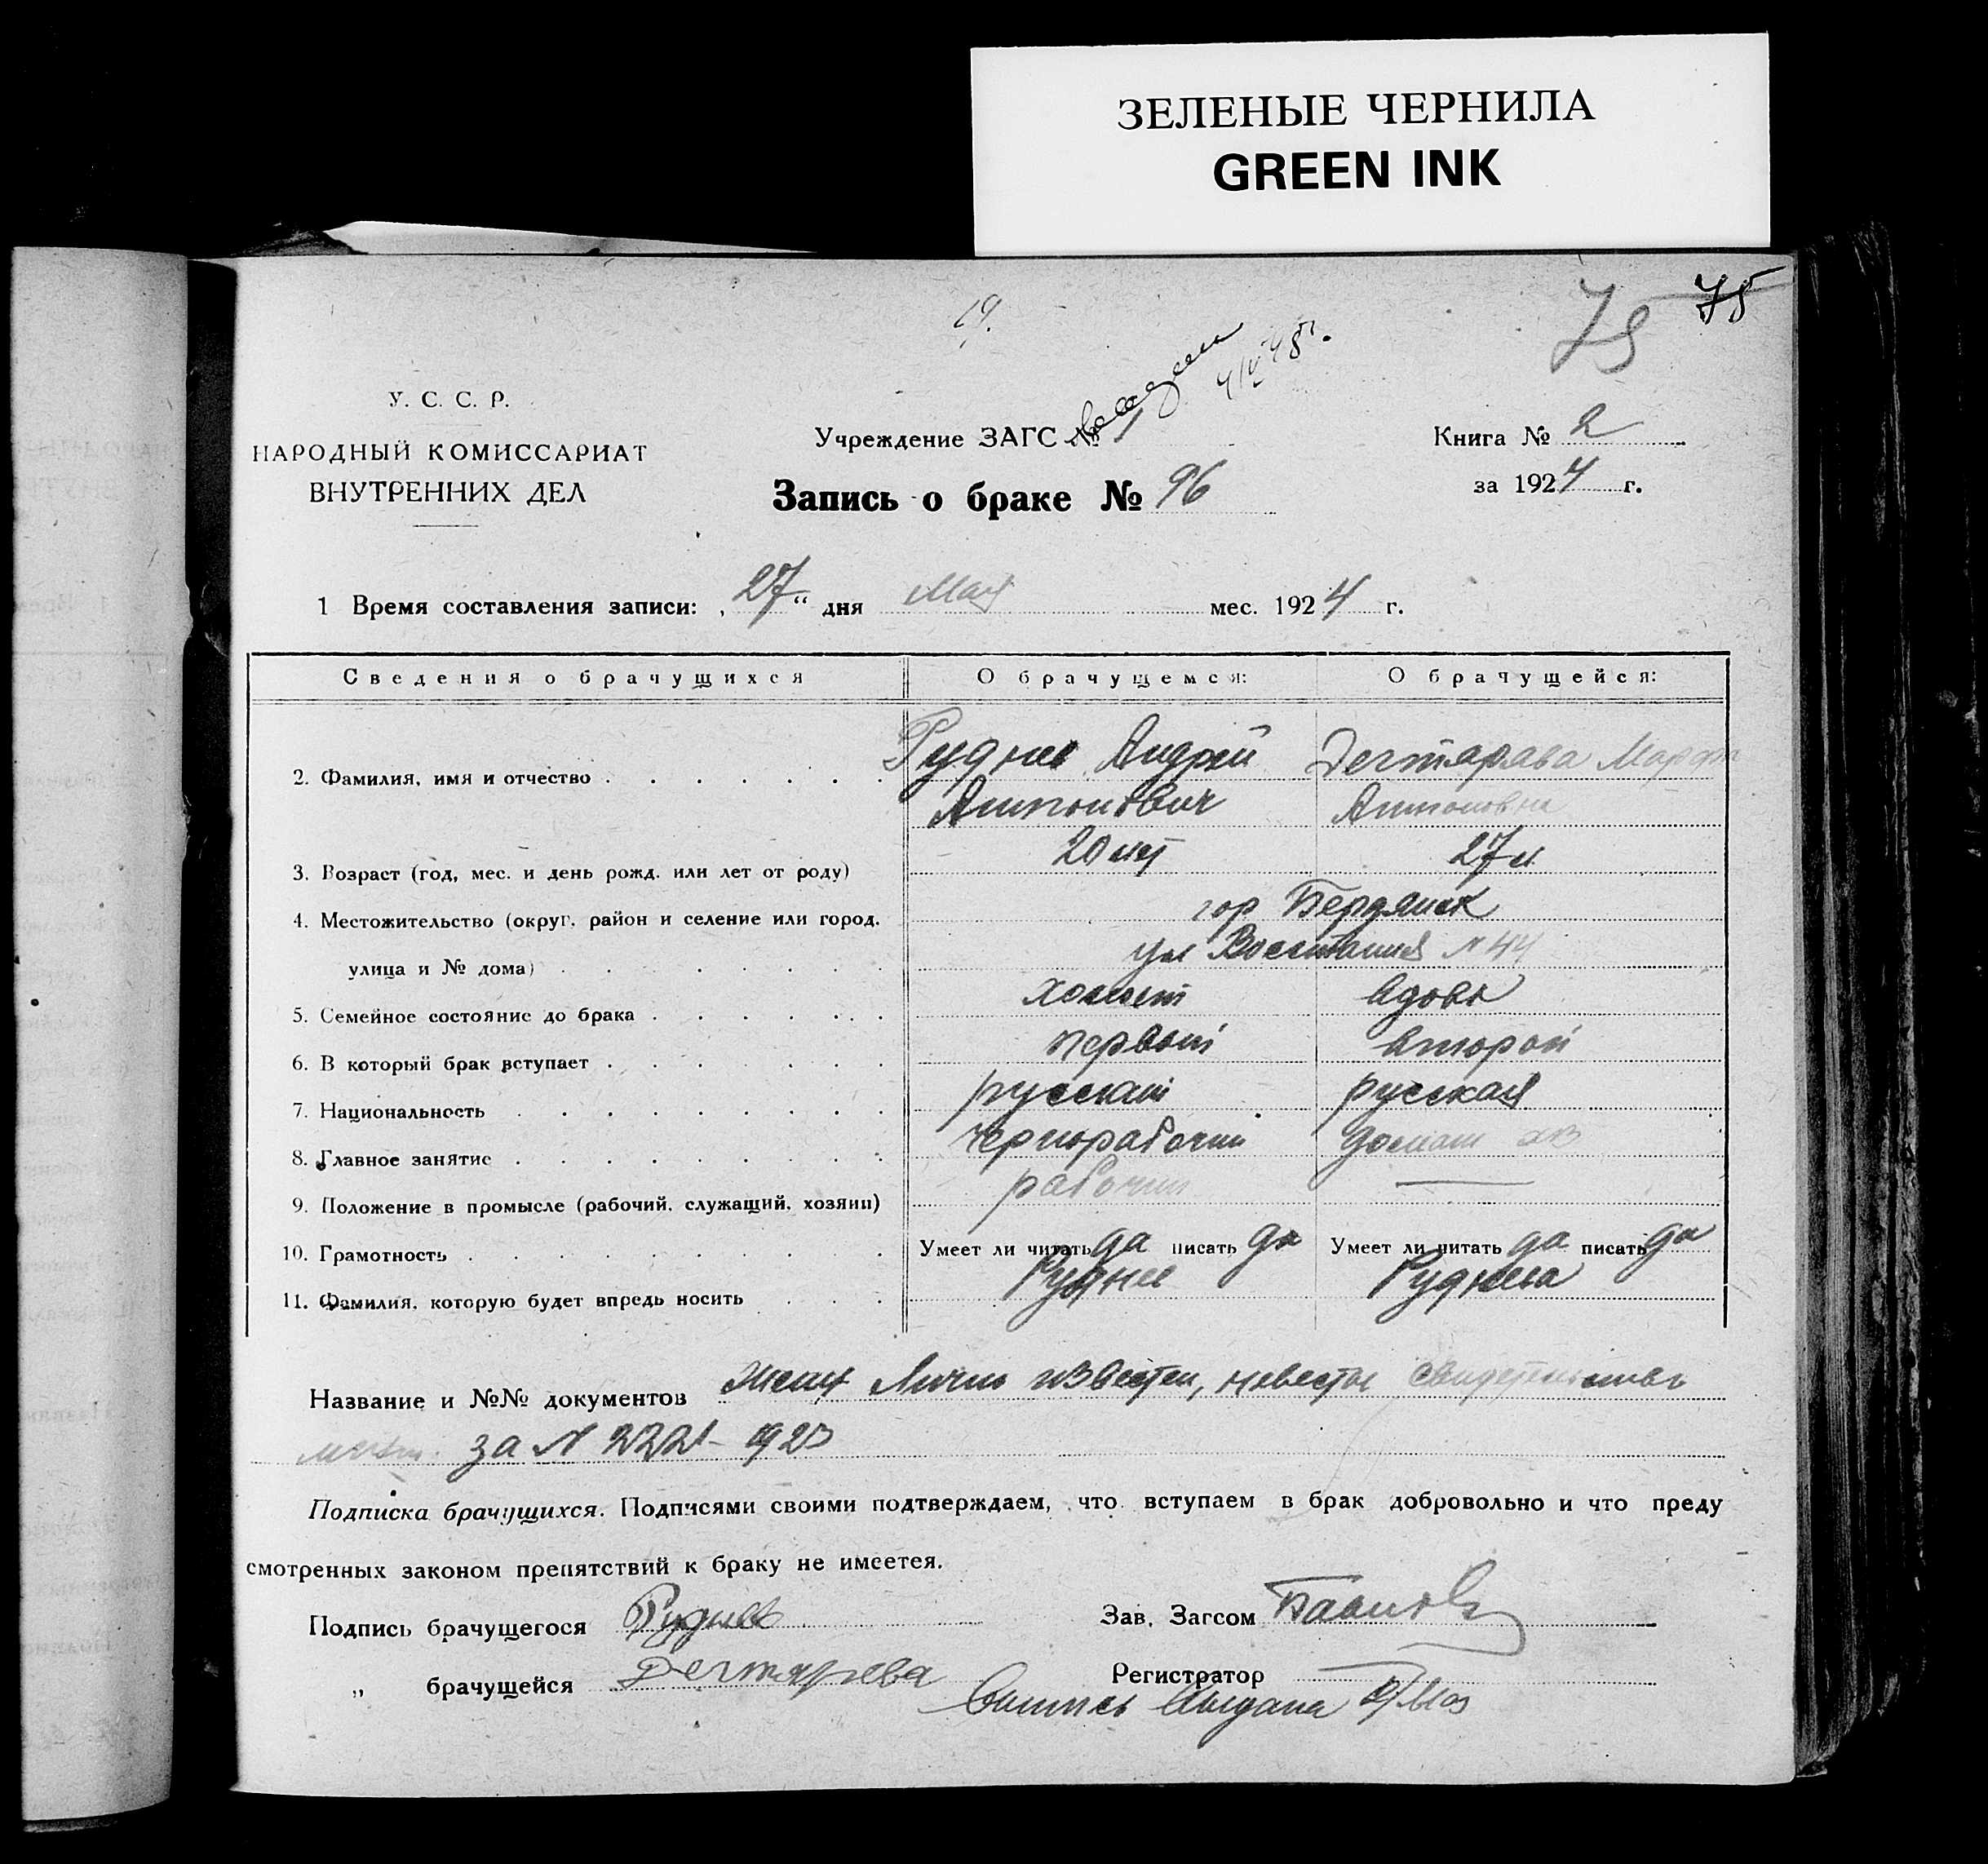 ЗЕЛЕНЫЕ ЧЕРНИЛА
GREEN INK
75
75
19.
4/IV 48 г.
У. С. С. Р.
НАРОДНЫЙ КОМИССАРИАТ
ВНУТРЕННИХ ДЕЛ
Учреждение ЗАГС №
Запись о браке № 96
Книга № 2
за 1924 г.
1 Время составления записи: „27“ дня Мая мес. 1924 г.
Сведения о брачущихся О брачущемся: О брачущейся:
2. Фамилия, имя и отчество Руднев Андрей Дегтярава Марфа
Антонович Антоновна
3. Возраст (год, мес. и день рожд. или лет от роду) 20 лет 27 л
4. Местожительство (округ, район и селение или город, гор Бердянск
улица и № дома) ул Воспитания № 44
5. Семейное состояние до брака холост вдова
6. В который брак вступает первый второй
7. Национальность русский русская
8. Главное занятие чернорабочий домаш хоз
9. Положение в промысле (рабочий, служащий, хозяин) рабочий —
10. Грамотность Умеет ли читать да писать да Умеет ли читать да писать да
11. Фамилия, которую будет впредь носить Руднев Руднева
Название и №№ документов Жених Лично известен, невесты свидетельство
за № 2221 - 1923
Подписка брачущихся. Подписями своими подтверждаем, что вступаем в брак добровольно и что преду
смотренных законом препятствий к браку не имеется.
Подпись брачущегося Руднев Зав. Загсом
„ брачущейся Дегтярева Регистратор
Выпись Выдана